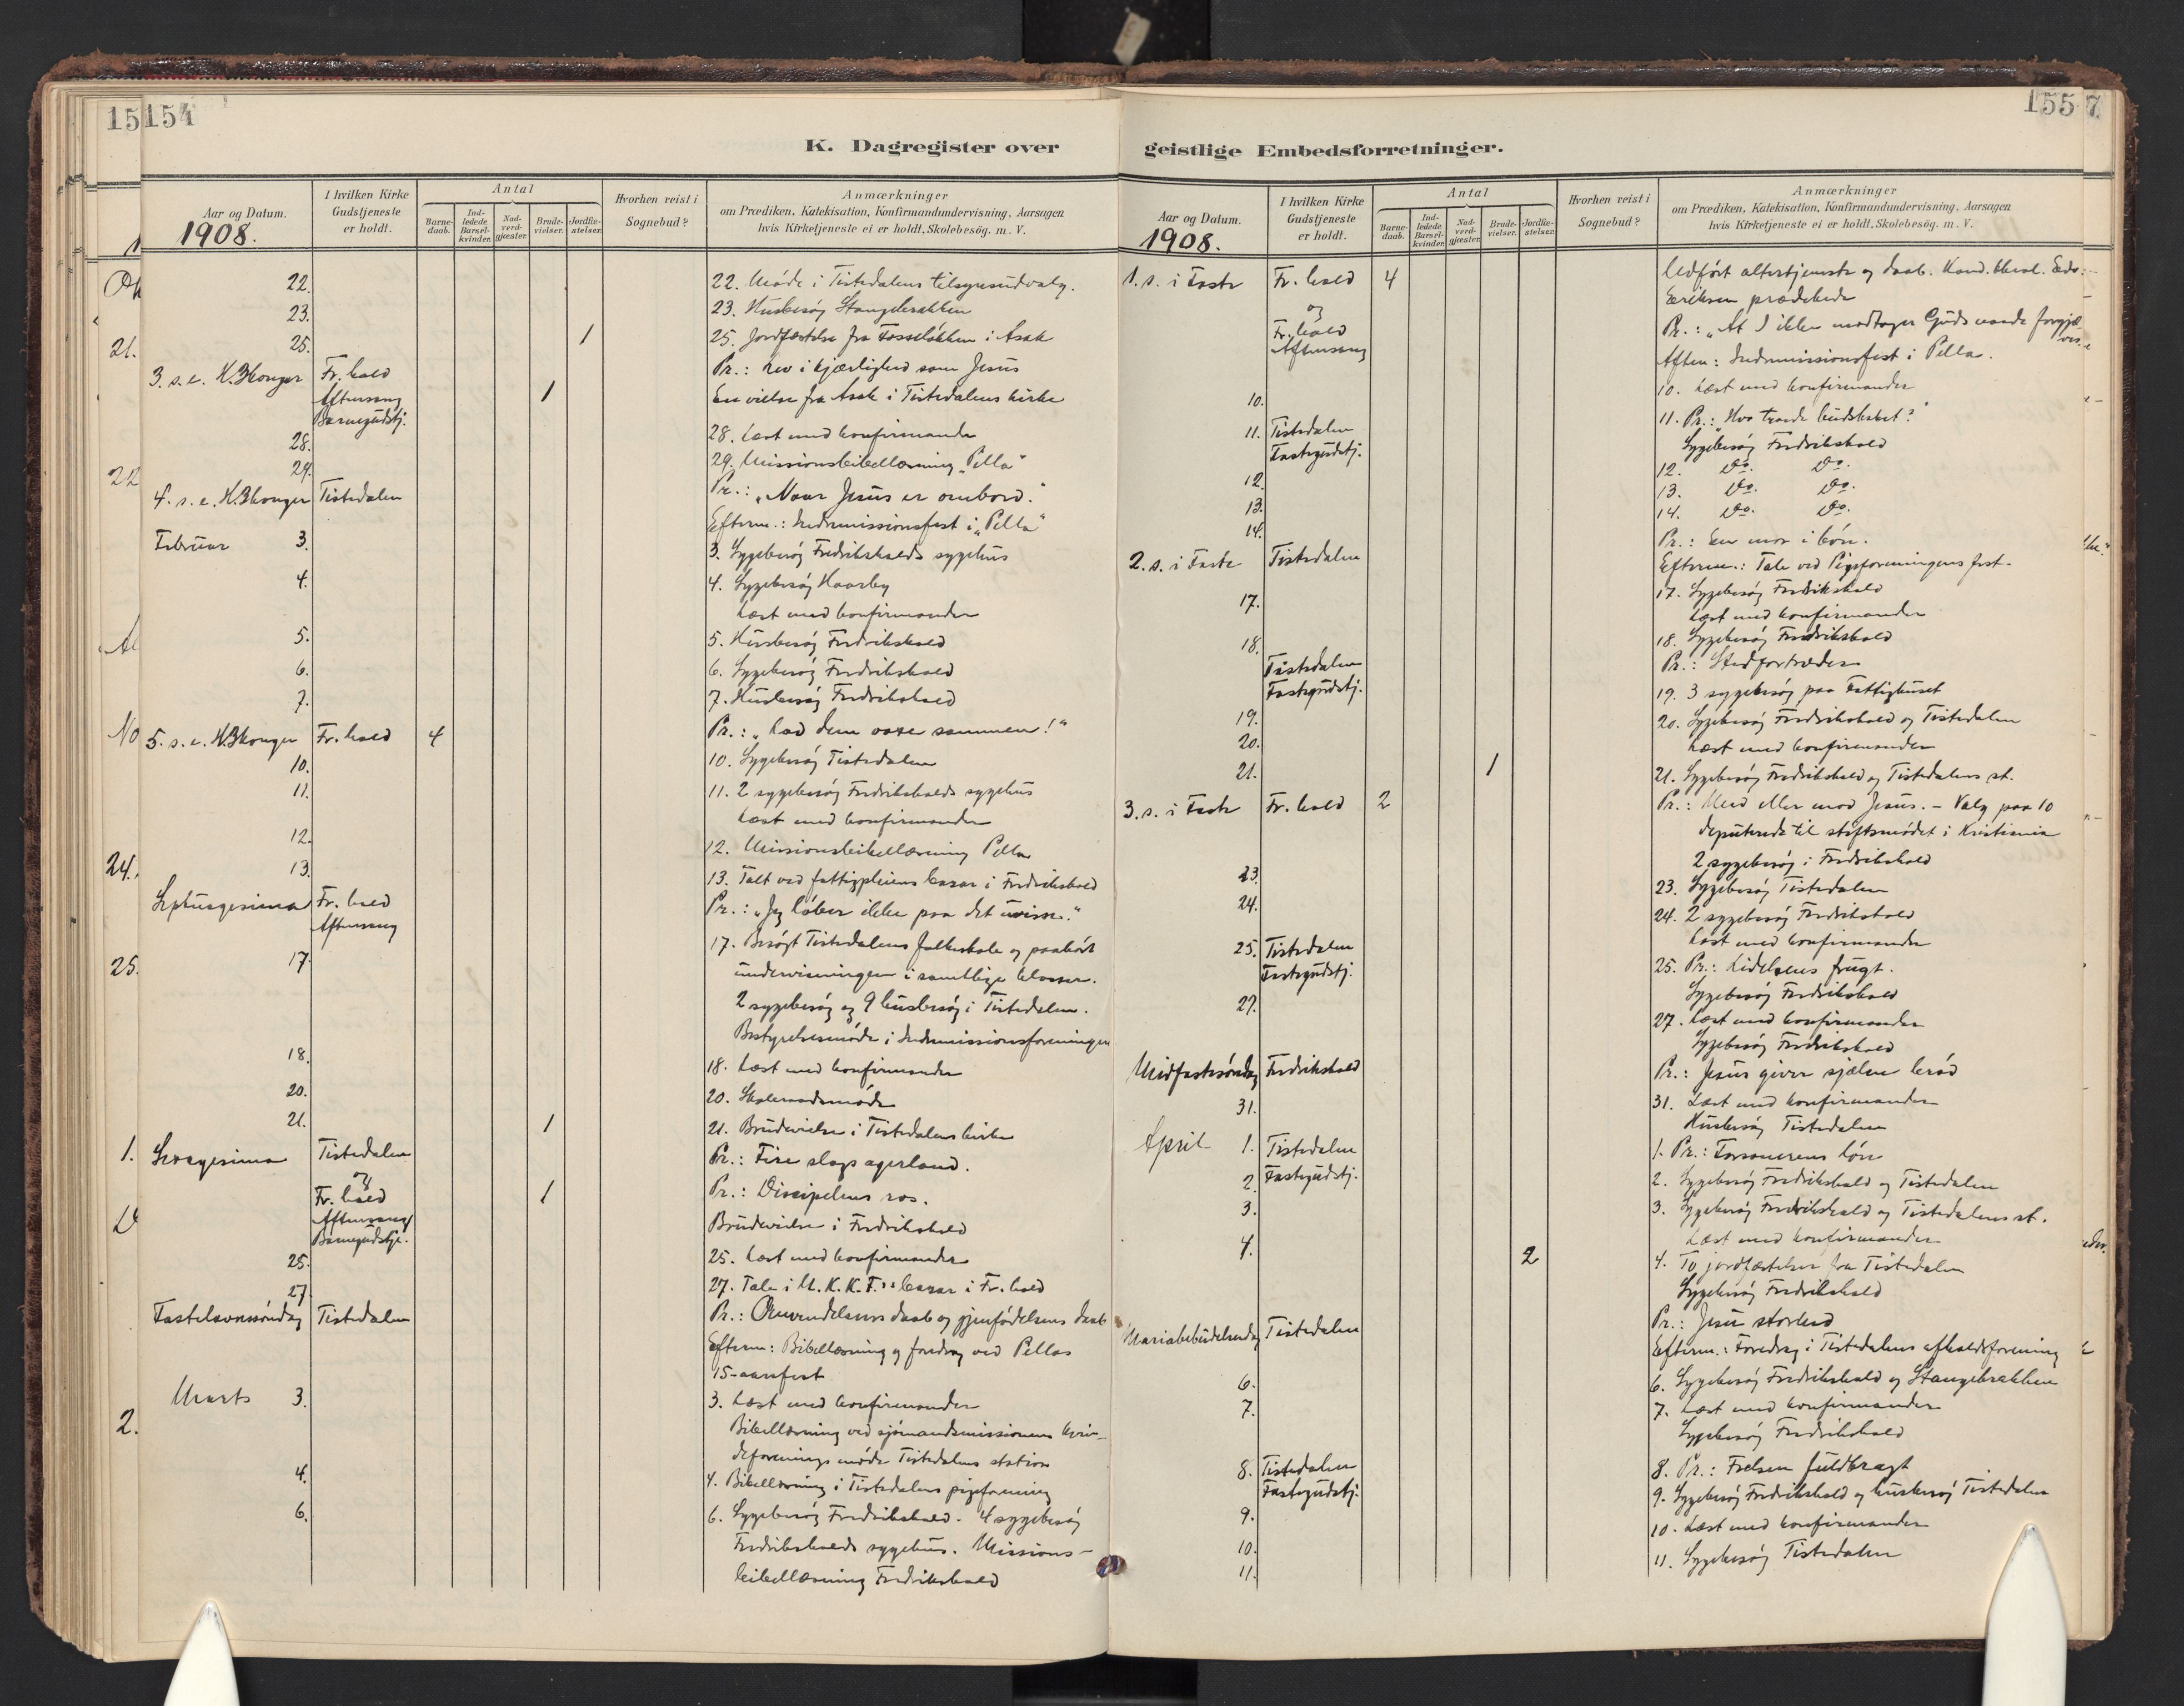 15 154
K. Dagregister over
Aar og Datum.
1908.
I hvilken Kirke
Gudstjeneste
er holdt.
Antal
Barne-
daab.
Ind-
ledede
Barsel-
kvinder.
Nad-
verd-
gjæster.
Brude-
vielser.
Jordfæ-
stelser.
Hvorhen reist i
Sognebud?
Anmærkninger
om Prædiken, Katekisation, Konfirmandundervisning, Aarsagen
hvis Kirketjeneste ei er holdt, Skolebesög. m. V.
22. 22. Møde i Tistedalens tilsynsudvalg.
23. 23. Husbesøg Stangebrakken
25. 1 25. Jordfæstelse fra Fosseløkken i Asak
3. s. e. H.3konger Fr.hald Pr.: rev i kjærlighed som Jesus
Aftensang 1 En vielse fra Asak i Tistedalens kirke
Barnegudstj.
28. 28. Læst med konfirmander
29. 29. Missionsbibellæsning "Pella"
4. s. e. H.3konger Tistedalen Pr.: "Naar Jesus er ombord."
Efterm.: Indremissionsfest i "Pella"
Februar 3. 3. Sygebesøg Fredrikshalds sygehus
4. 4. Sygebesøg Haarby
Læst med konfirmander
5. 5. Husbesøg Fredrikshald
6. 6. Sygebesøg Fredrikshald
7. 7. Husbesøg Fredrikshald
5. s. e. H.3konger Fr. hald 4 Pr.: "Lad dem voxe sammen!"
10. 10. Sygebesøg Tistedalen
11. 11. 2 sygebesøg Fredrikshalds sygehus
Læst med konfirmander
12. 12. Missionsbibellæsning Pella
13. 13. Talt ved fattigpleiens basar i Fredrikshald
Septuagesima Fr. hald Pr.: "Jeg løber ikke paa det uvisse."
Aftensang
17. 17. Besøgt Tistedalens folkeskole og paahørt
undervisningen i samtlige klasser.
2 sygebesøg og 9 husbesøg i Tistedalen.
Bestyrelsesmøde i Indremissionsforeningen
18. 18. Læst med konfirmander
20. 20. Skoleraadsmøde
21. 1 21. Brudevielse i Tistedalens kirke
Sexagesima Tistedalen Pr.: Fire slags agerland.
og
Fr. hald 1 Pr.: Disciplens ros.
Aftensang Brudevielse i Fredrikshald
Barnegudstje.
25. 25. Læst med konfirmander
27. 27. Tale i U. K. K. F.'s basar i Fr. hald
Fastelavnssøndag Tistedalen Pr.: Omvendelsens daab og gjenfødelsens daab
Efterm: Bibellæsning og foredrag ved Pellas
15-aarsfest
Marts 3. 3. Læst med konfirmander
Bibellæsning ved sjømandsmissionens kvin-
deforenings møde Tistedalens station
4. 4. Bibellæsning i Tistedalens pigeforening
6. 6. Sygebesøg Fredrikshald. 4 sygebesøg
Fredrikshalds sygehus. Missions-
bibellæsning Fredrikshald
155 7.
geistlige Embedsforretninger.
Aar og Datum.
1908.
I hvilken Kirke
Gudstjeneste
er holdt.
Antal
Barne-
daab.
Ind-
ledede
Barsel-
kvinder.
Nad-
verd-
gjæster.
Brude-
vielser.
Jordfæ-
stelser.
Hvorhen reist i
Sognebud?
Anmærkninger
om Prædiken, Katekisation, Konfirmandundervisning, Aarsagen
hvis Kirketjeneste ei er holdt, Skolebesög. m. V.
1. s. i Faste Fr. hald 4 Udført altertjeneste og daab. Kand. theol.
og Eriksen prædikede
Fr. hald Pr.: "At I ikke modtager Guds naade forgjæ-
Aftensang ves.
Aften: Indremissionsfest i Pella.
10. 10. Læst med konfirmander
11. Tistedalen 11. Pr.: "Hvo troede budskabet?"
Fastegudstj. Sygebesøg Fredrikshald
12. 12. Do. Do.
13. 13. Do. Do.
14. 14. Do. Do.
2. s. i Faste Tistedalen Pr.: En mor i bøn.
Efterm.: Tale ved Pigeforeningens fest.
17. 17. Sygebesøg Fredrikshald
Læst med konfirmander
18. 18. Sygebesøg Fredrikshald
Tistedalen Pr.: Stedfortræder
Fastegudstj.
19. 19. 3 sygebesøg paa Fattighuset
20. 20. Sygebesøg Fredrikshald og Tistedalen
Læst med konfirmander
21. 1 21. Sygebesøg Fredrikshald og Tistedalens st.
3. s. i Faste Fr. hald 2 Pr.: Med eller mod Jesus. - Valg paa 10
deputerede til stiftsmødet i Kristiania
2 sygebesøg i Fredrikshald
23. 23. Sygebesøg Tistedalen
24. 24. 2 sygebesøg Fredrikshald
Læst med konfirmander
25. Tistedalen 25. Pr.: Lidelsens frugt.
Fastegudstj. Sygebesøg Fredrikshald
27. 27. Læst med konfirmander
Sygebesøg Fredrikshald
Midfastesøndag Fredrikshald Pr.: Jesus giver sjælen brød
31. 31. Læst med konfirmander
Husbesøg Tistedalen
April 1. Tistedalen 1. Pr.: Forsonerens bøn
Fastegudstj.
2. 2. Sygebesøg Fredrikshald og Tistedalen
3. 3. Sygebesøg Fredrikshald og Tistedalens st.
Læst med konfirmander
4. 2 4. To jordfæstelser fra Tistedalen
Sygebesøg Fredrikshald
Mariabebudelsesdag Tistedalen Pr.: Jesu storhed
Efterm.: Foredrag i Tistedalens afholdsforening
6. 6. Sygebesøg Fredrikshald og Stangebrakken
7. 7. Læst med konfirmander
Sygebesøg Fredrikshald
8. Tistedalen 8. Pr.: Frelsen fuldbragt
Fastegudstj.
9. 9. Sygebesøg Fredrikshald og husbesøg Tistedalen
10. 10. Læst med konfirmander
11. 11. Sygebesøg Tistedalen